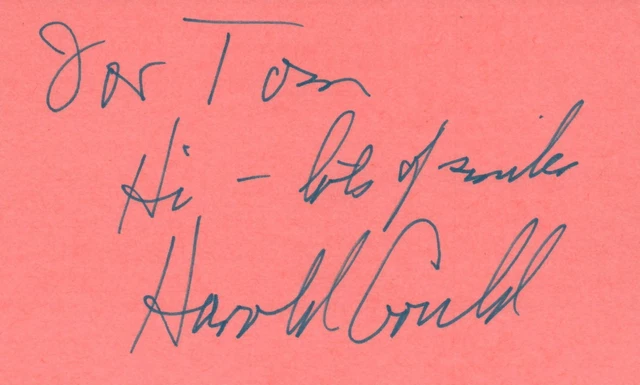 For Tom
Hi - lots of smiles
Harold Gould